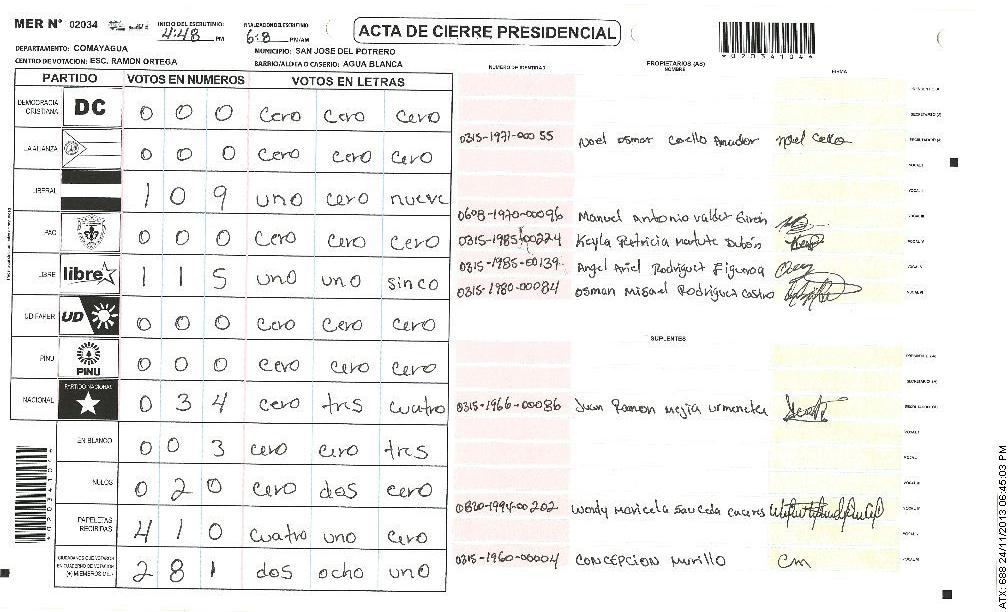 MER N° 02034
INICIO DEL ESCRUTINIO: 4:48 PM
FINALIZACION DEL ESCRUTINIO 6:8 PM/AM
ACTA DE CIERRE PRESIDENCIAL
*0203410 4*
DEPARTAMENTO: COMAYAGUA
MUNICIPIO: SAN JOSE DEL POTRERO
CENTRO DE VOTACION: ESC. RAMON ORTEGA
BARRIO/ALDEA O CASERIO: AGUA BLANCA
NUMERO DE IDENTIDAD PROPIETARIOS (AS) NOMBRE FIRMA
PARTIDO VOTOS EN NUMEROS VOTOS EN LETRAS
DEMOCRACIA CRISTIANA DC 0 0 0 cero cero cero
LA ALIANZA 0 0 0 cero cero cero
LIBERAL 1 0 9 uno cero nueve
PAC 0 0 0 cero cero cero
LIBRE libre 1 1 5 uno uno sinco
UD FAPER UD 0 0 0 cero cero cero
PINU PINU 0 0 0 cero cero cero
NACIONAL PARTIDO NACIONAL 0 3 4 cero tres cuatro
EN BLANCO 0 0 3 cero cero tres
NULOS 0 2 0 cero dos cero
PAPELETAS RECIBIDAS 4 1 0 cuatro uno cero
CIUDADANOS QUE VOTARON EN CUADERNO DE VOTACION (+) MIEMBROS MER 2 8 1 dos ocho uno
0315-1971-00055 Noel osmar Coello Amador
0608-1970-00096 Manuel Antonio Valdez Giron
0315-1985-00224 Keyla Patricia Matute Dubón
0315-1985-00139 Angel Ariel Rodriguez Figueroa
0315-1980-00084 osman Misael Rodriguez Castro
SUPLENTES
0315-1966-00086 Juan Ramon mejia urmeneta
0820-1994-00202 Wendy Maricela Sauceda caceres
0315-1960-00004 CONCEPCION Murillo cm
ATX: 688 24/11/2013 06:45:03 PM